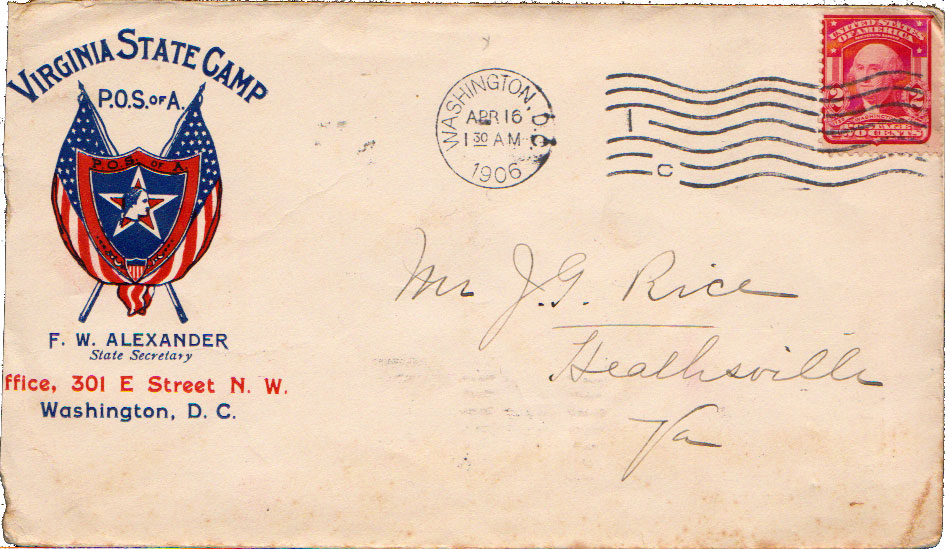 VIRGINIA STATE CAMP
P.O.S. OF A.
P.O.S. OF A
F. W. ALEXANDER
State Secretary
ffice, 301 E Street N. W.
Washington, D. C.
WASHINGTON, D.C.
APR 16
1 30 AM
1906
1
C
UNITED STATES
OF AMERICA
2 2
POSTAGE
TWO CENTS
Mr J. G. Rice
Heathsville
Va